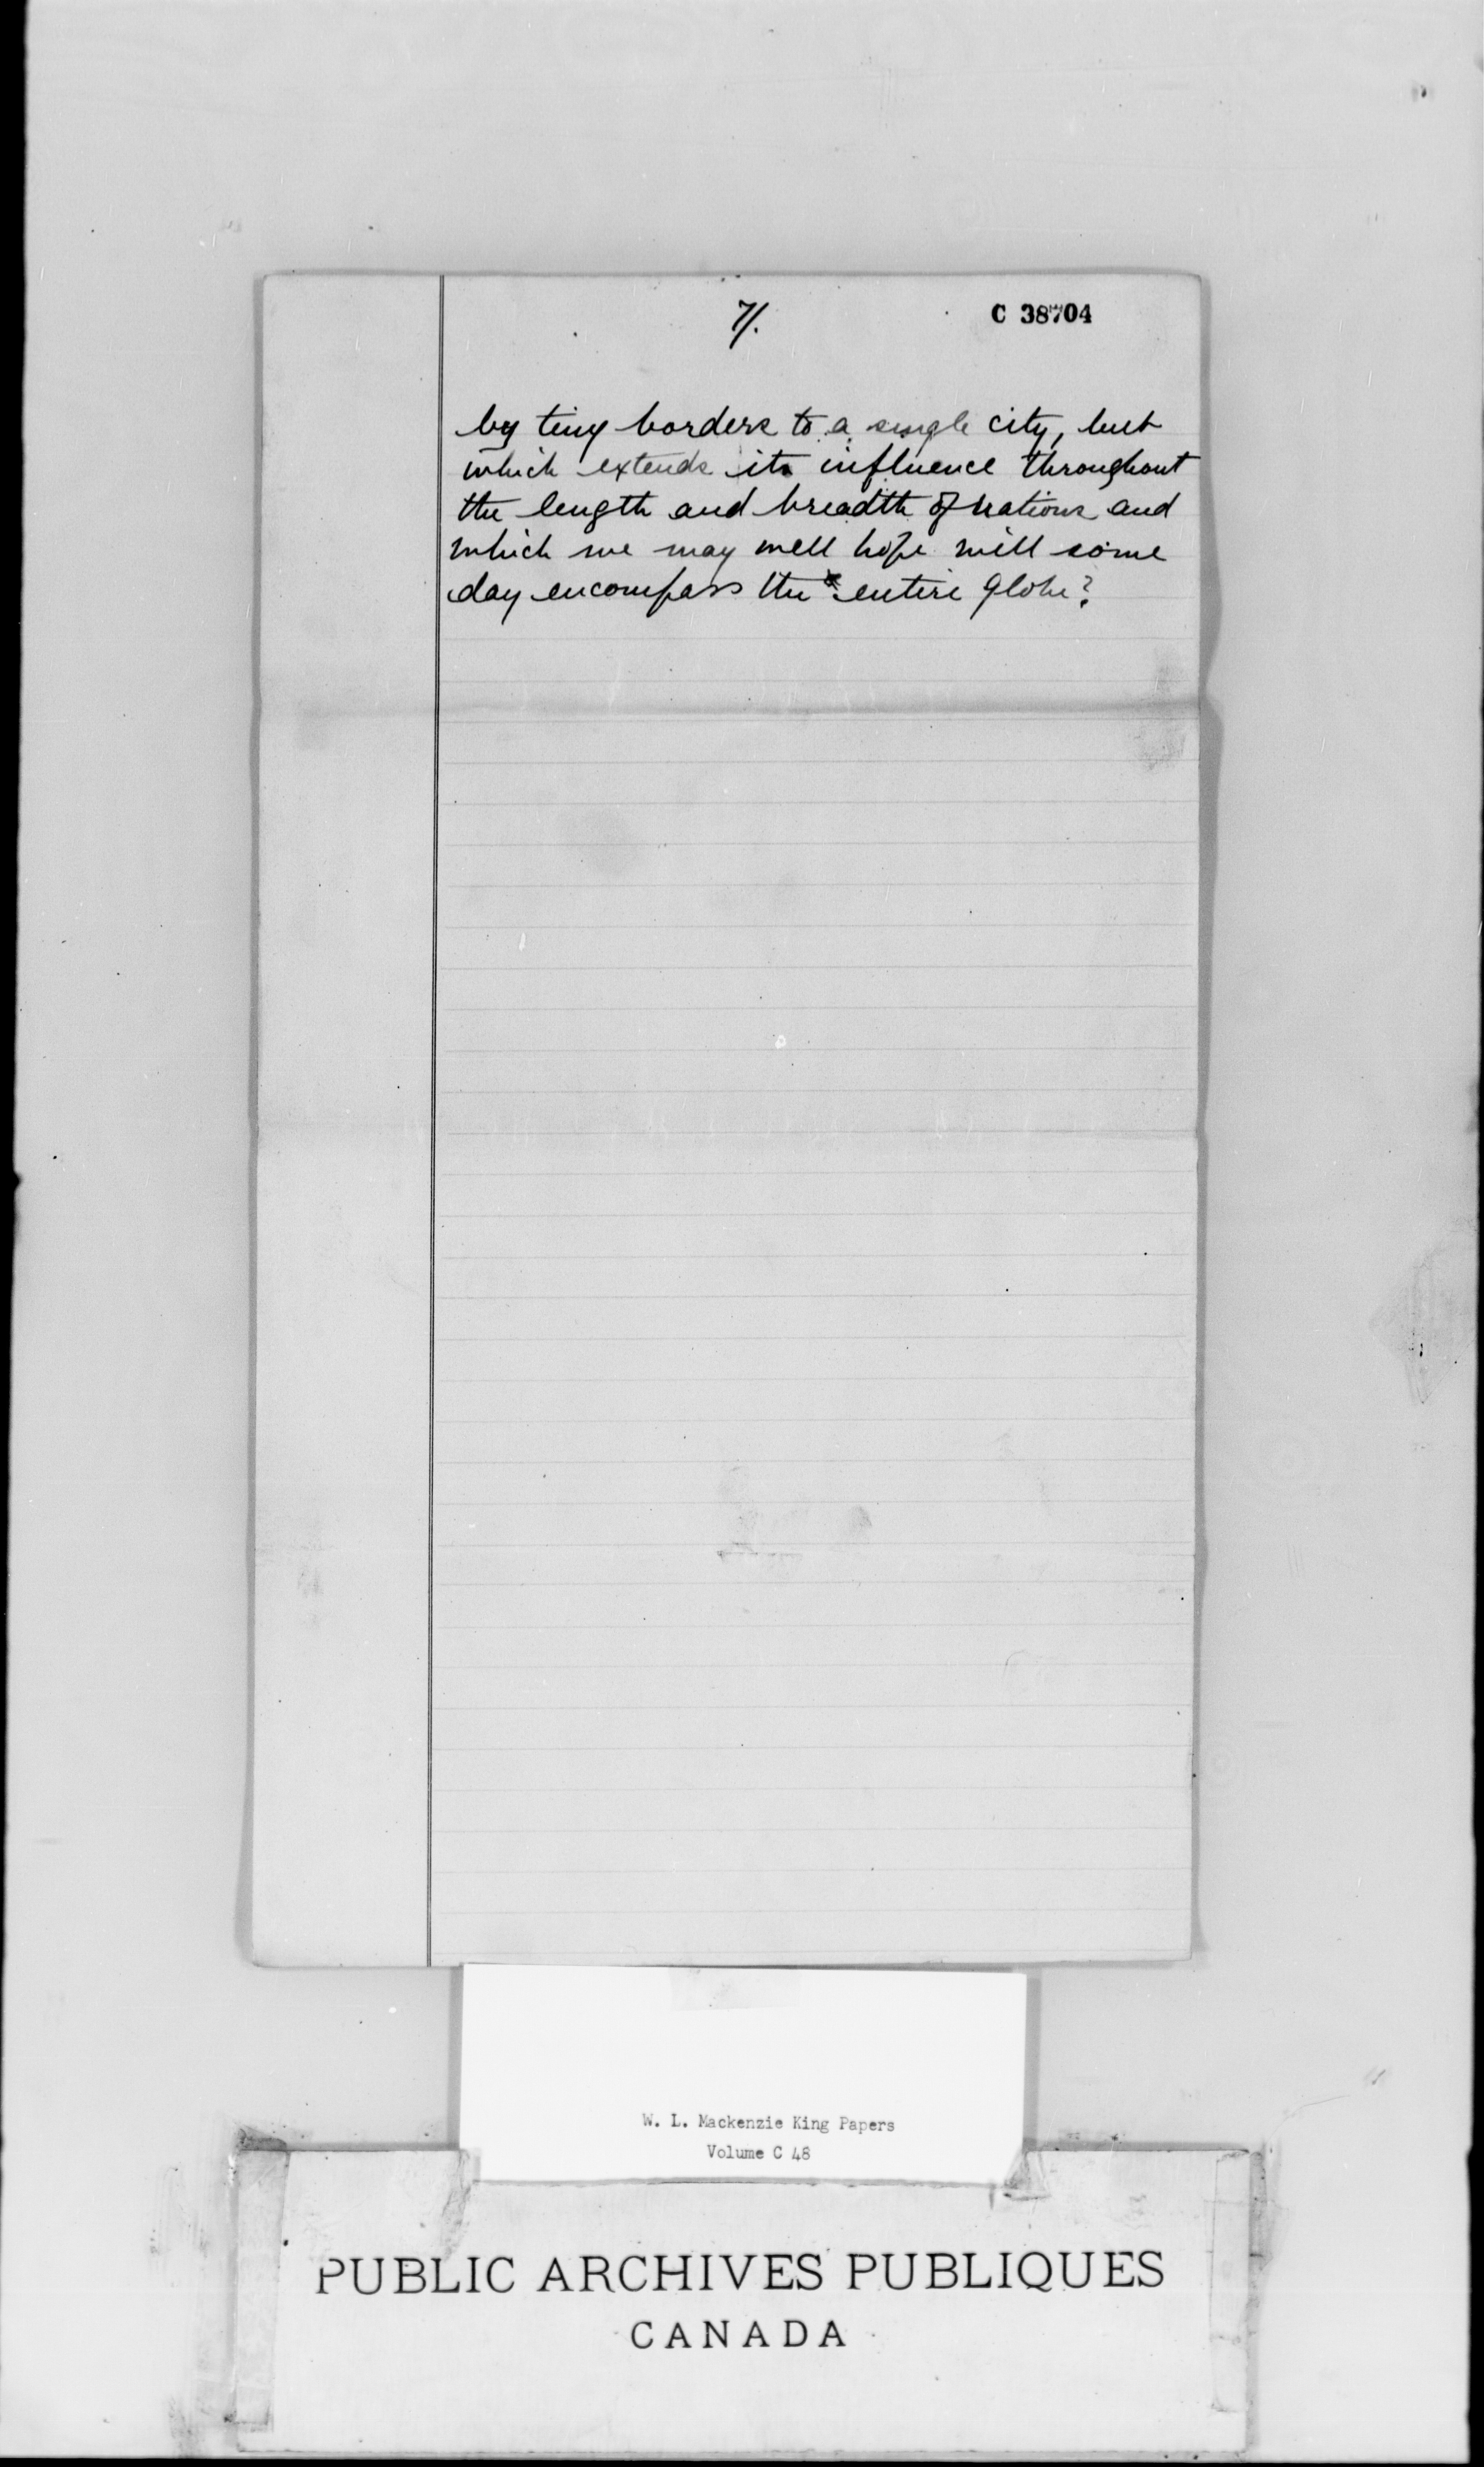 7/.
C 38704
by tiny borders to a single city, but
which extends its influence throughout
the length and breadth of nations and
which we may well hope will some
day encompass the entire globe?
W. L. Mackenzie King Papers
Volume C 48
PUBLIC ARCHIVES PUBLIQUES
CANADA